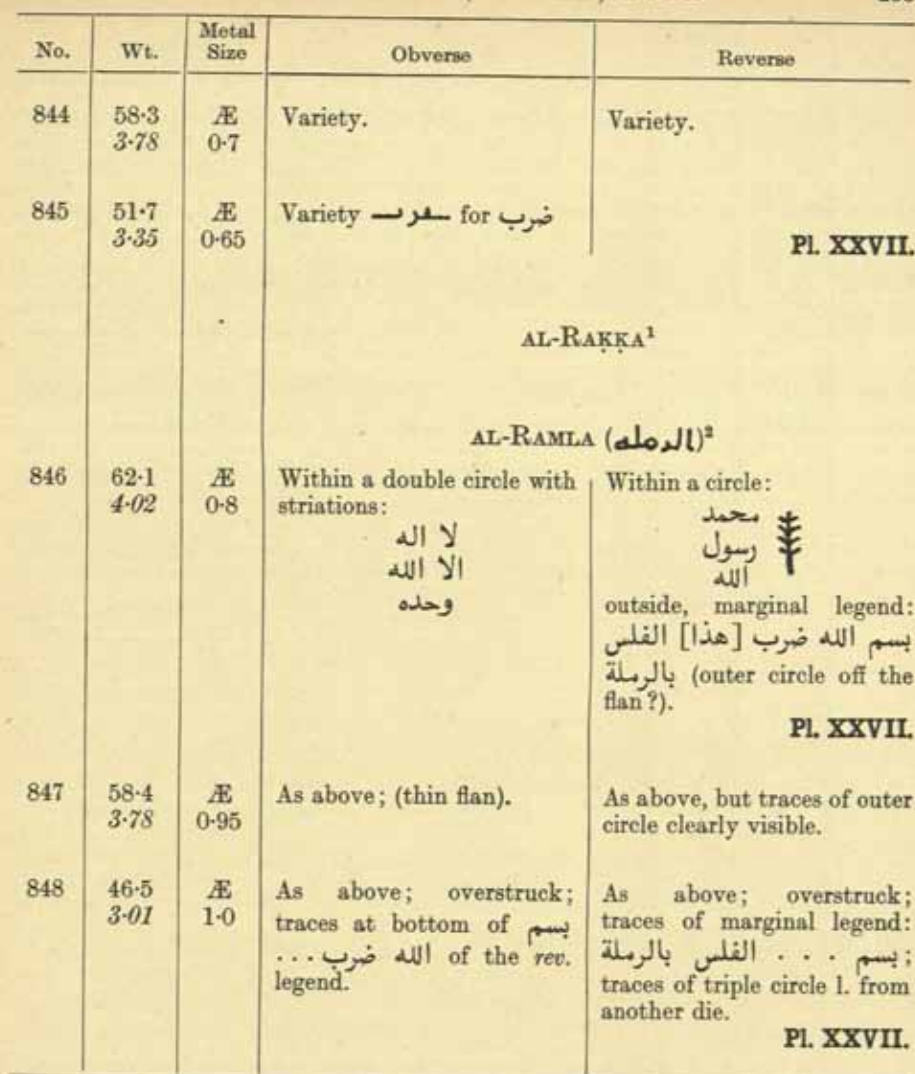 No. Wt. Metal Size Obverse Reverse
844 58·3 Æ Variety. Variety.
3·78 0·7
845 51·7 Æ Variety for ضرب
3·35 0·65 Pl. XXVII.
AL-RAḲḲA¹
AL-RAMLA (الرمله)²
846 62·1 Æ Within a double circle with Within a circle:
4·02 0·8 striations:
لا اله
الا الله
وحده
محمد
رسول
الله
outside, marginal legend:
بسم الله ضرب [هذا] الفلس
بالرملة (outer circle off the
flan?).
Pl. XXVII.
847 58·4 Æ As above; (thin flan). As above, but traces of outer
3·78 0·95 circle clearly visible.
848 46·5 Æ As above; overstruck;
3·01 1·0 traces at bottom of بسم
الله ضرب... of the rev.
legend.
As above; overstruck;
traces of marginal legend:
بسم . . . الفلس بالرملة;
traces of triple circle l. from
another die.
Pl. XXVII.